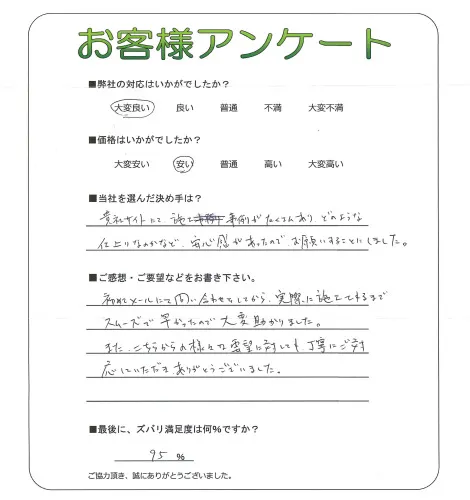 お客様アンケート
■弊社の対応はいかがでしたか？
大変良い 良い 普通 不満 大変不満
■価格はいかがでしたか？
大変安い 安い 普通 高い 大変高い
■当社を選んだ決め手は？
貴社サイトにて、施工事例がたくさんあり、どのような
仕上りなのかなど、安心感があったので、お願いすることにしました。
■ご感想・ご要望などをお書き下さい。
初めメールにて問い合わせをしてから、実際に施工できるまで
スムーズで早かったので大変助かりました。
また、こちらからの様々な要望に対しても、丁寧にご対
応していただきありがとうございました。
■最後に、ズバリ満足度は何%ですか？
95 %
ご協力頂き、誠にありがとうございました。